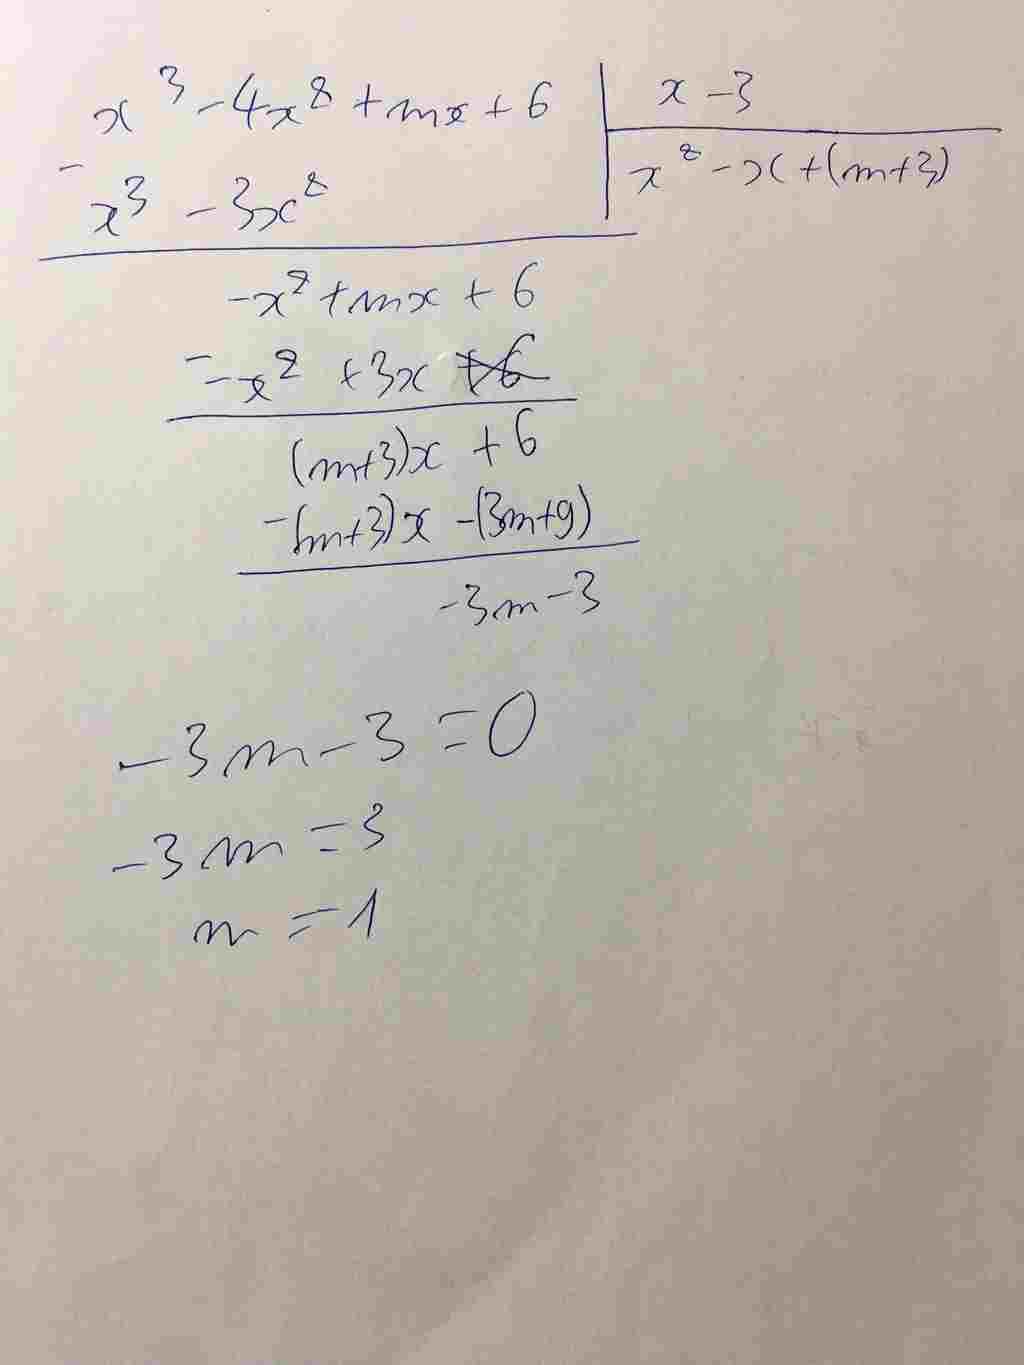 x³ - 4x² + mx + 6 | x - 3
- x³ - 3x² | x² - x + (m+3)
-x² + mx + 6
- -x² + 3x
(m+3)x + 6
- (m+3)x - (3m+9)
-3m - 3
-3m - 3 = 0
-3m = 3
m = 1